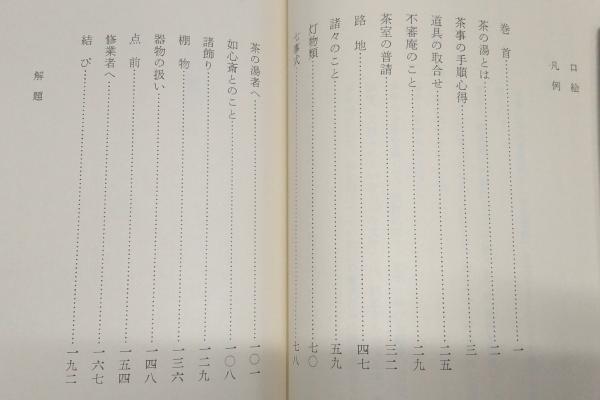 口絵
凡例
巻首……一
茶の湯とは……二
茶事の手順心得……三
道具の取合せ……二五
不審庵のこと……二九
茶室の普請……三二
路地……四七
諸々のこと……五九
灯物類……七〇
七事式……七八
茶の湯者へ……一〇一
如心斎とのこと……一〇八
諸飾り……一二九
棚物……一三六
器物の扱い……一四八
点前……一五四
修業者へ……一六七
結び……一九二
解題